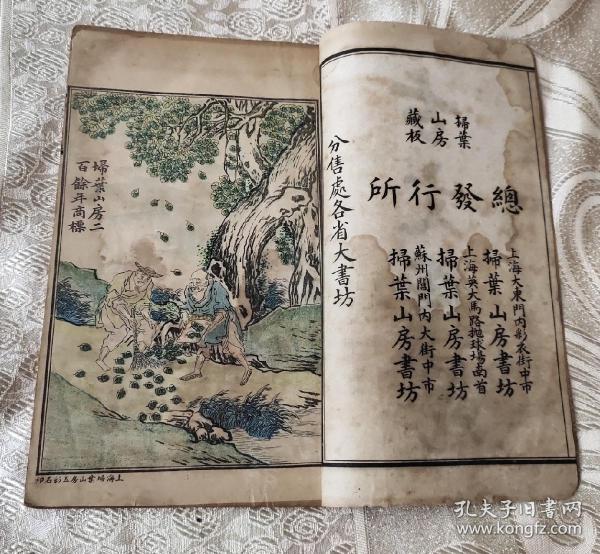 掃葉
山房
藏板
總發行所
上海大東門內彩衣街中市
掃葉山房書坊
上海英大馬路抛球場南首
掃葉山房書坊
蘇州閶門內大街中市
掃葉山房書坊
分售處各省大書坊
掃葉山房二
百餘年商標
上海掃葉山房五彩石印
孔夫子旧书网
www.kongfz.com